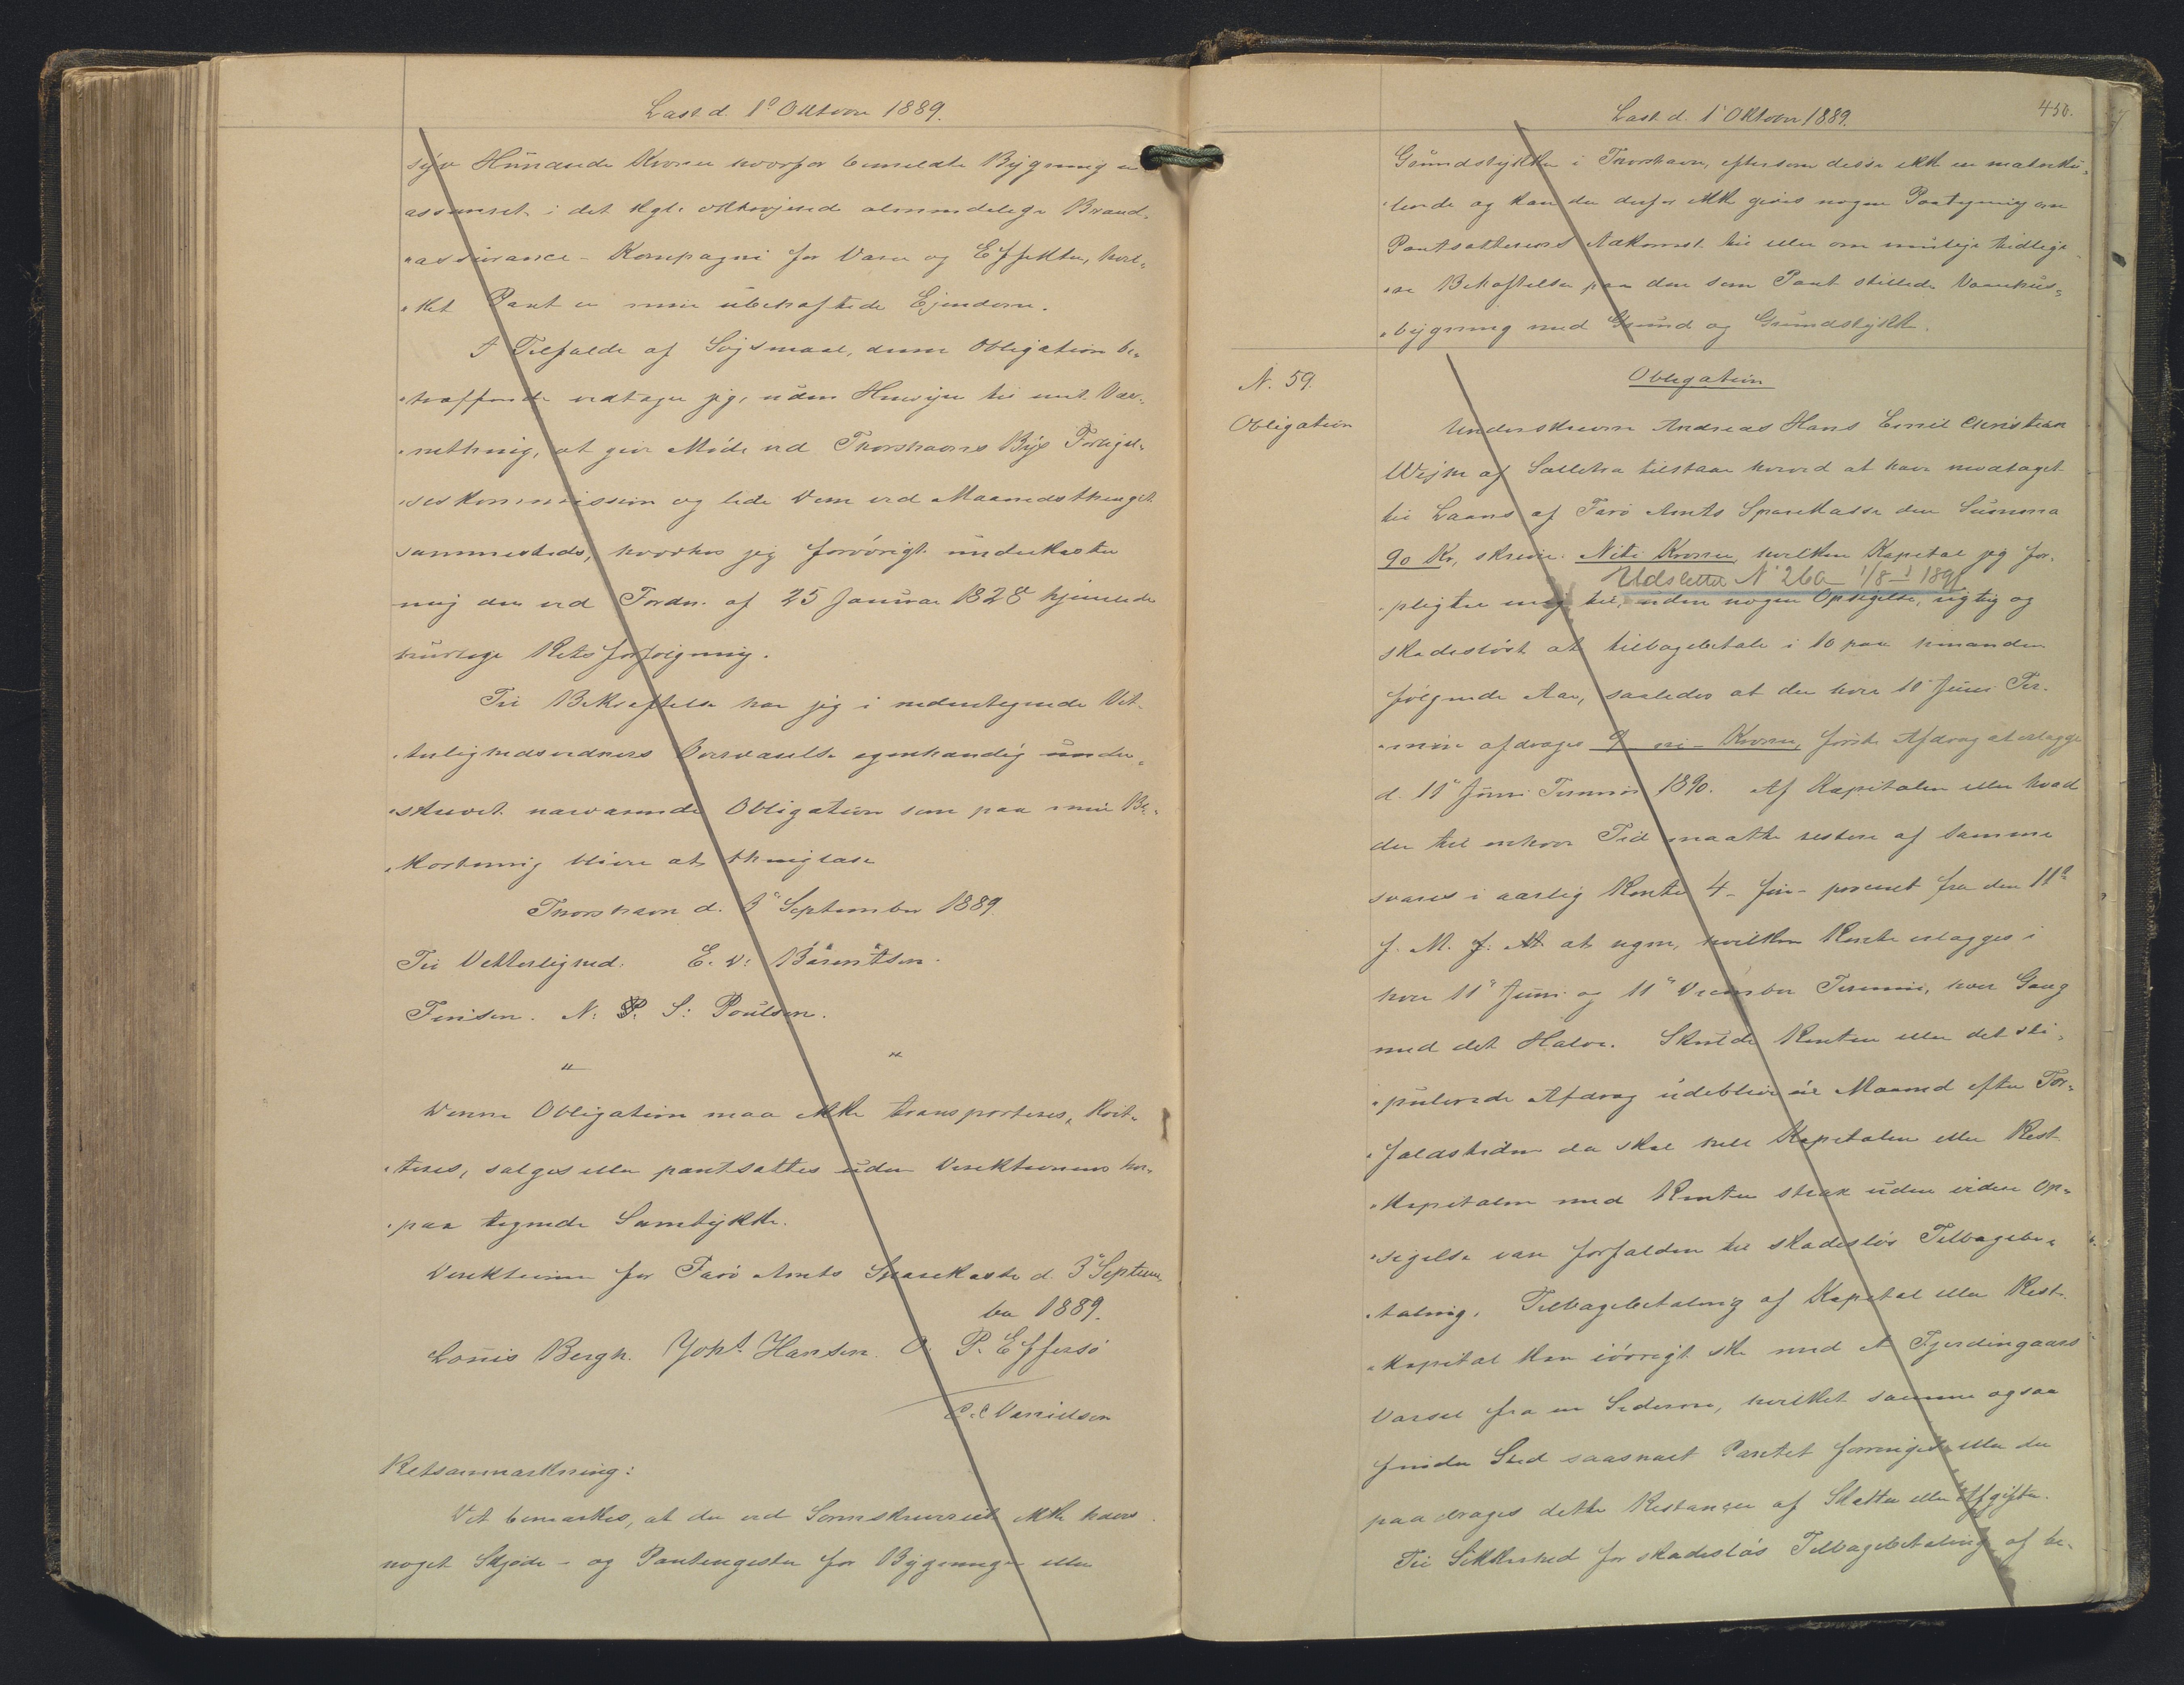 Læst d. 1ᵉ Oktober 1889.
syv Hundrede Kroner hvorfor bemeldte Bygning er
assureret i det kgl. oktrojerede almindelige Brand-
assurance-Kompagni for Varer og Effekter, hvil-
ket Pant er min ubehæftede Ejendom.
I Tilfælde af Søgsmaal, denne Obligation be-
træffende vedtager jeg, uden Hensyn til mit Vær-
nething, at give Møde ved Thorshavns Byes Forligel-
seskommission og lide Dom ved Maanedsthinget
sammesteds, hvorhos jeg forøvrigt underkaster
mig den ved Fordn. af 25 Januar 1828 hjemlede
hurtige Retsforfølgning.
Til Bekræftelse har jeg i nedentegnede Vit-
terlighedsvidners Overværelse egenhændig under-
skrevet nærværende Obligation som paa min Be-
kostning bliver at thinglæse
Thorshavn d. 3ᵉ September 1889.
Til Vitterlighed. E. V. Bärentsen.
Jensen. N. P. S. Poulsen.
" "
Denne Obligation maa ikke transporteres, kvit-
teres, sælges eller pantsættes uden Direktionens her-
paa tegnede Samtykke.
Direktionen for Færø Amts Sparekasse d. 3 Septem-
ber 1889.
Louis Bergh. Johs. Hansen. O. P. Effersö
C. C. Danielsen
Retsanmærkning:
Det bemærkes, at der ved Sorenskriveriet ikke haves
noget Skjøde- og Panteregister for Bygninger eller
450.
Læst d. 1ᵉ Oktober 1889.
Grundstykker i Thorshavn, eftersom disse ikke er matriku-
lerede og kan der derfor ikke gives nogen Paategning om
Pantsætterens Adkomst til eller om mulige tidlige-
re Behæftelser paa den som Pant stillede Vaanhus-
bygning med Grund og Grundstykke.
N. 59.
Obligation
Obligation
Underskrevne Andreas Hans Emil Christian
Wejhe af Selletræ tilstaar herved at have modtaget
til Laans af Færø Amts Sparekasse den Summa
90 Kr, skriver Niti Kroner, hvilken Kapital jeg for-
Udslettet N 260 1/8 1891
pligter mig til, uden nogen Opsigelse, rigtig og
skadesløst at tilbagebetale i 10 paa hinanden
følgende Aar, saaledes at der hver 11 Juni Ter-
min afdrages 9 ni Kroner, første Afdrag at erlægge
d. 11 Juni Termin 1890. Af Kapitalen eller hvad
der til enhver Tid maatte restere af samme
svares i aarlig Rente 4 - fire - procent fra den 11ᵉ
f. M. f. A. at regne, hvilken Rente erlægges i
hver 11 Juni og 11 December Termin, hver Gang
med det Halve. Skulde Renten eller det sti-
pulerede Afdrag udeblive én Maaned efter For-
faldstiden da skal hele Kapitalen eller Rest-
kapitalen med Renter strax uden videre Op-
sigelse være forfalden til skadesløs Tilbagebe-
taling. Tilbagebetaling af Kapital eller Rest-
kapital kan iøvrigt ske med et Fjerdingaars
Varsel fra en Side, hvilket samme ogsaa
finder Sted saasnart Pantet forringes eller der
paadrages dette Restancer af Skatter eller Afgifter.
Til Sikkerhed for skadesløs Tilbagebetaling af be-